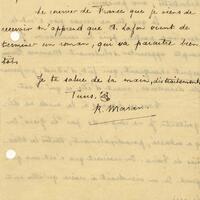 Le courrier de France que je viens de
recevoir m'apprend que A. Lafon vient de
terminer un roman, qui va paraître bien-
tôt.
Je te salue de la main, distraitement
Tuus.
R. Maran.